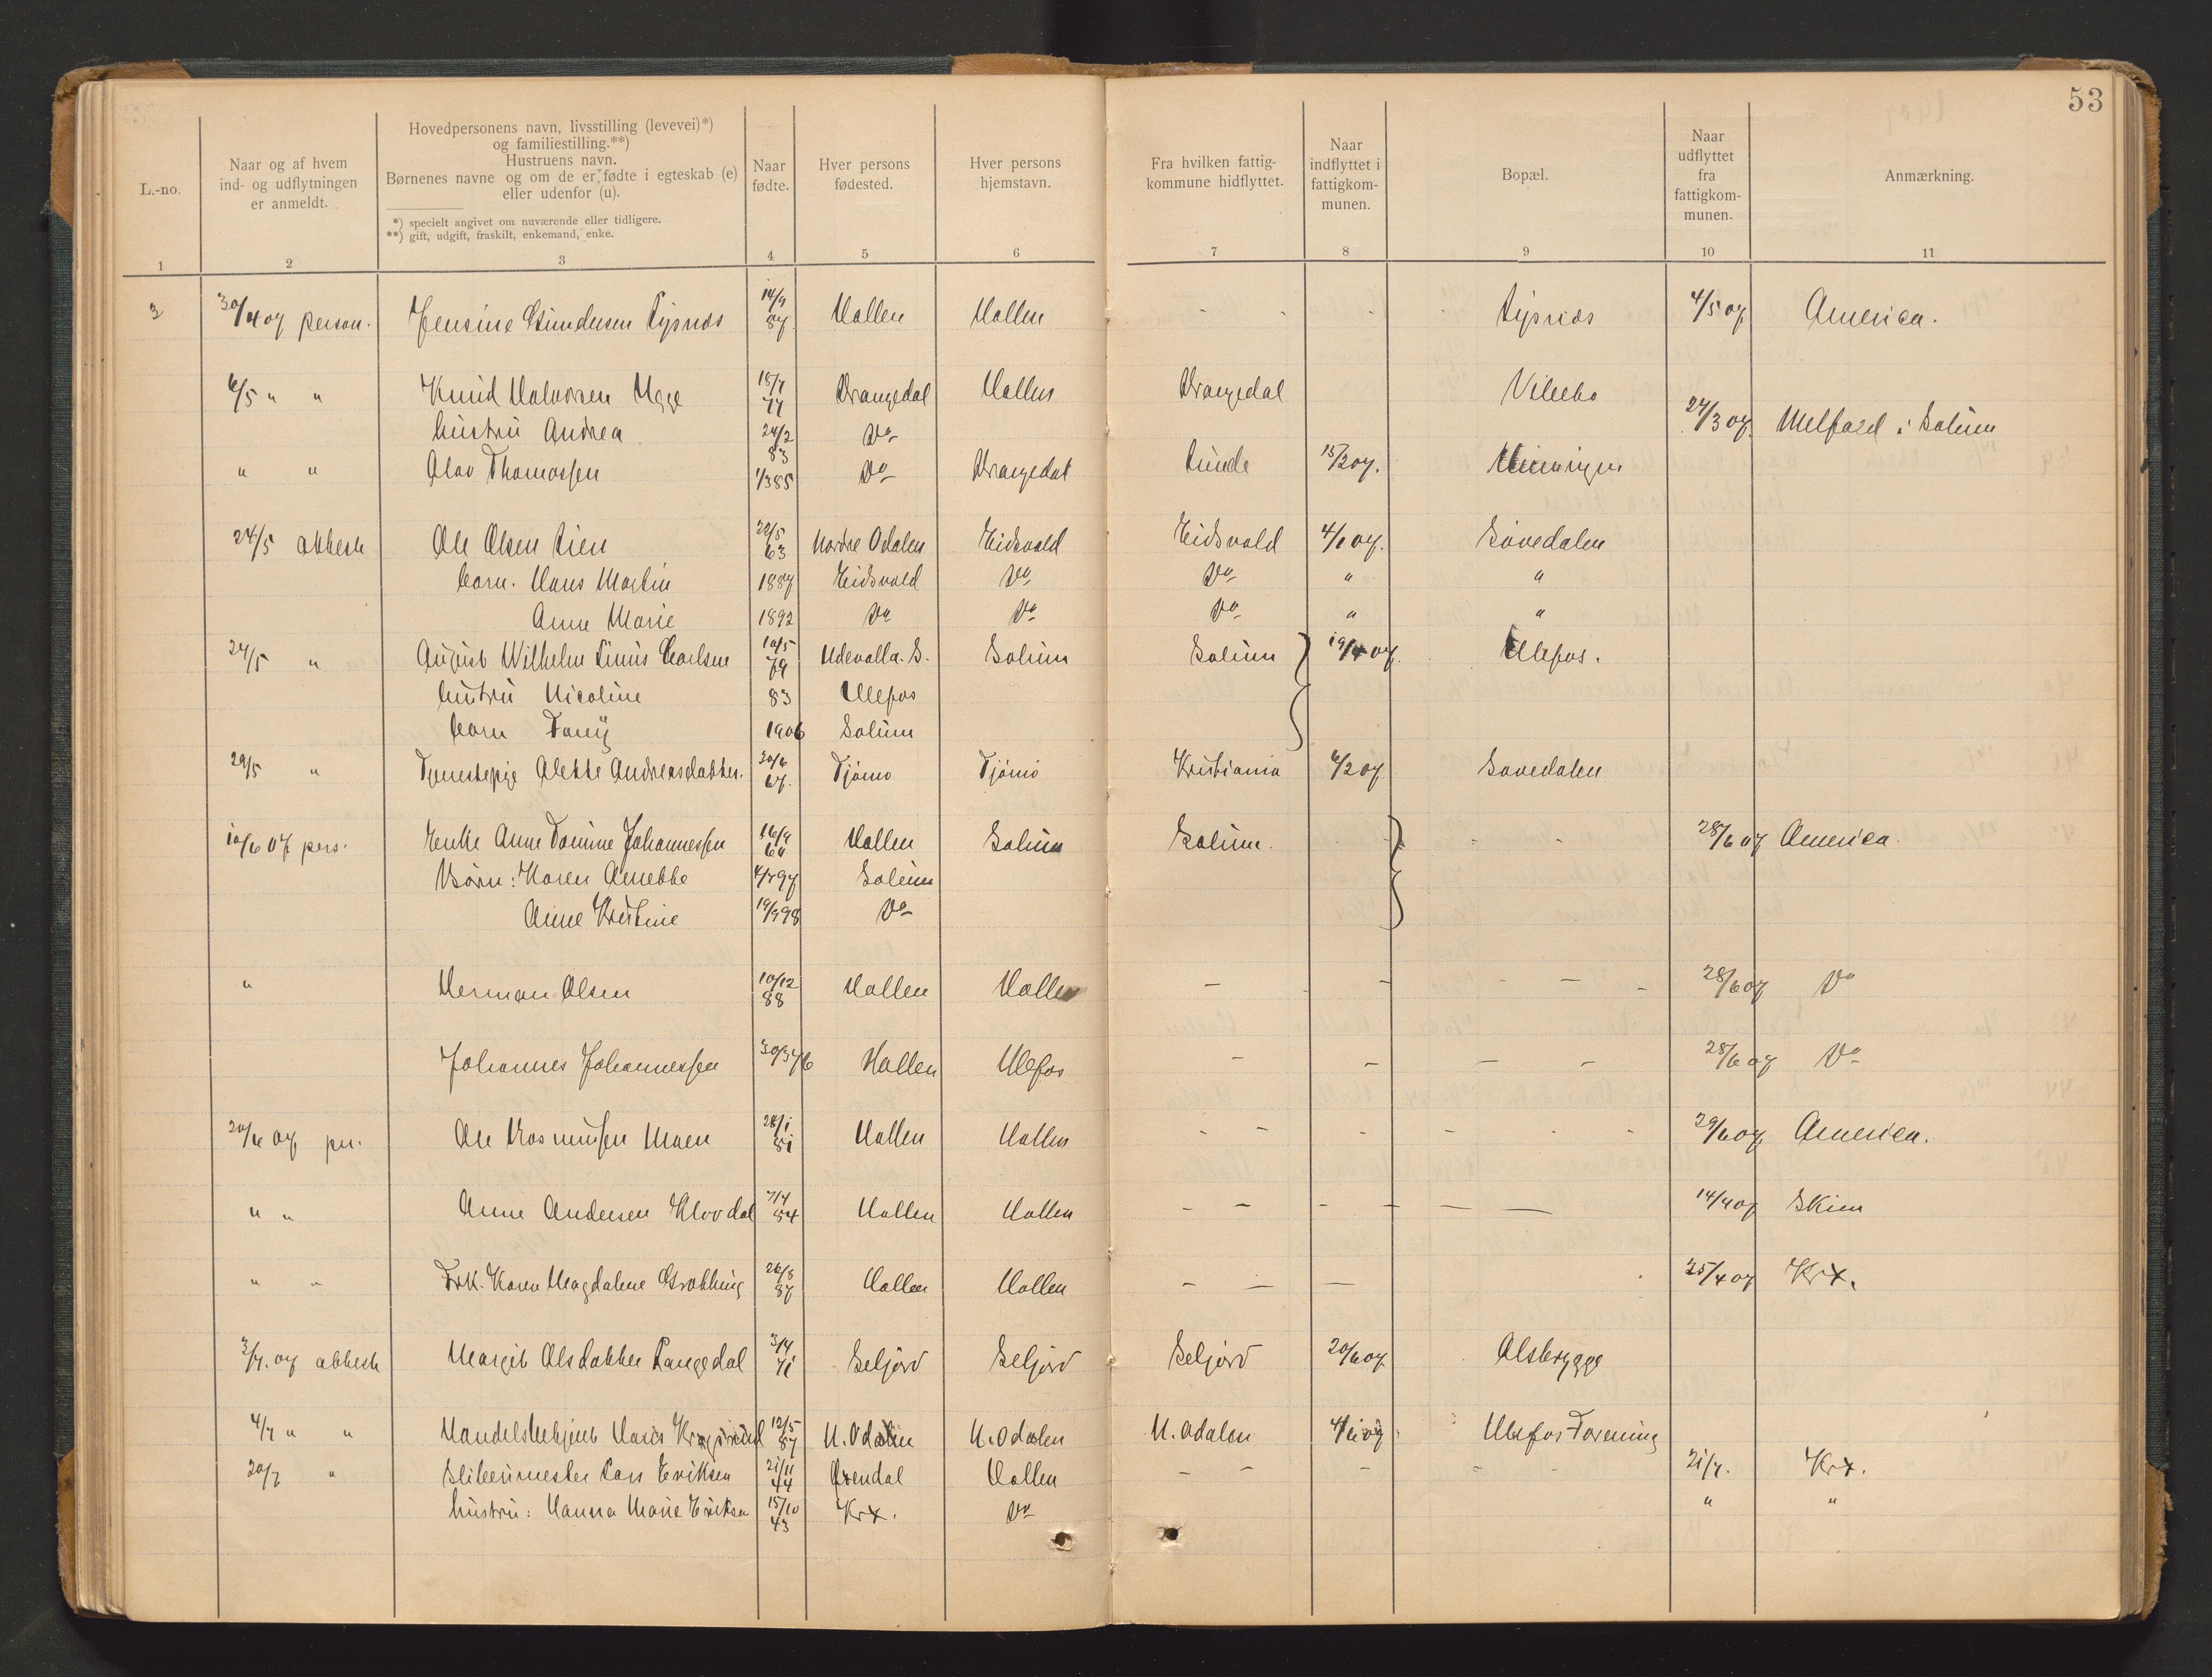 53
L.-no.
Naar og af hvem ind- og udflytningen er anmeldt.
Hovedpersonens navn, livsstilling (levevei)*) og familiestilling.**)
Hustruens navn.
Børnenes navne og om de er født i egteskab (e) eller udenfor (u).
*) specielt angivet om nuværende eller tidligere.
**) gift, udgift, fraskilt, enkemand, enke.
Naar fødte.
Hver persons fødested.
Hver persons hjemstavn.
Fra hvilken fattigkommune hidflyttet.
Naar indflyttet i fattigkommunen.
Bopæl.
Naar udflyttet fra fattigkommunen.
Anmærkning.
1 2 3 4 5 6 7 8 9 10 11
3 30/4 07 person. Jensine Gundersen Sysnes 14/9 87 Hollen Hollen - - - - 4/5 07 America.
6/5 " " Knud Halvorsen Drangedal Hollen Drangedal
hustru Andrea 24/2 83 Do 24/3 07 Melfald i Solum
" " Olav Thomassen 1/3 85 Do Drangedal Lunde 15/2 07.
24/5 attest Ole Olsen Lien 63 Nordre Odalen Eidsvold Eidsvold 4/1 07. Sovedalen
barn. Hans Martin 1887 Eidsvold Do Do " "
Anne Marie 1892 Do Do Do " "
24/5 " August Wilhelm Linus Carlsen 10/5 79 Udevalla. S. Solum Solum 19/4 07 Ulefos.
hustru Nicoline 83 Ulefos
barn Fanny 1906 Solum
29/5 " Tjenestepige Alette Andreasdatter. 20/6 67. Tjömö Tjömö Kristiania 6/2 07 Sovedalen
10/6 07 pers. Enke Anne Tomine Johannessen 16/9 60 Hollen Solum Solum. - - 28/6 07 America.
Börn: Karen Anette 97 Solum
Anne Kristine 19/9 98 Do
" Herman Olsen 10/12 88 Hollen Hollen - - - - 28/6 07 Do
Johannes Johannessen 30/3 76 Hollen Ulefos - - - - 28/6 07 Do
20/6 07 per. Ole Rasmussen Moen 28/1 81 Hollen Hollen - - - - - 29/6 07 America.
" " Anne Andersen Klovdal 7/4 84 Hollen Hollen - - - - - - 14/4 07 Skien
" " Frk. Karen Magdalene 26/8 87 Hollen Hollen - - - 25/4 07 Krx.
3/7. 07 attest Margit Olsdatter Langedal 3/4 71 Seljord Seljord Seljord 20/6 07. Olsbrygge
4/7 " " Handelsbetjent Hans 12/5 87 N. Odalen N. Odalen N. Odalen Ulefos Forening
20/7 " Slibermester Lars Eriksen 21/11 44 Arendal Hollen - - - - - 21/7. Krx.
hustru: Hanna Marie Eriksen 15/10 43 Krx. Do " "